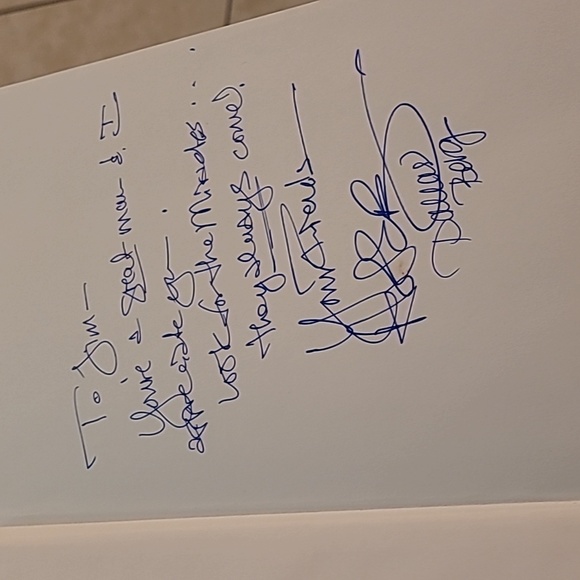 To Jim —
You're a great man & I
appreciate you.
Look for the Miracles...
they always come).
Your Friends